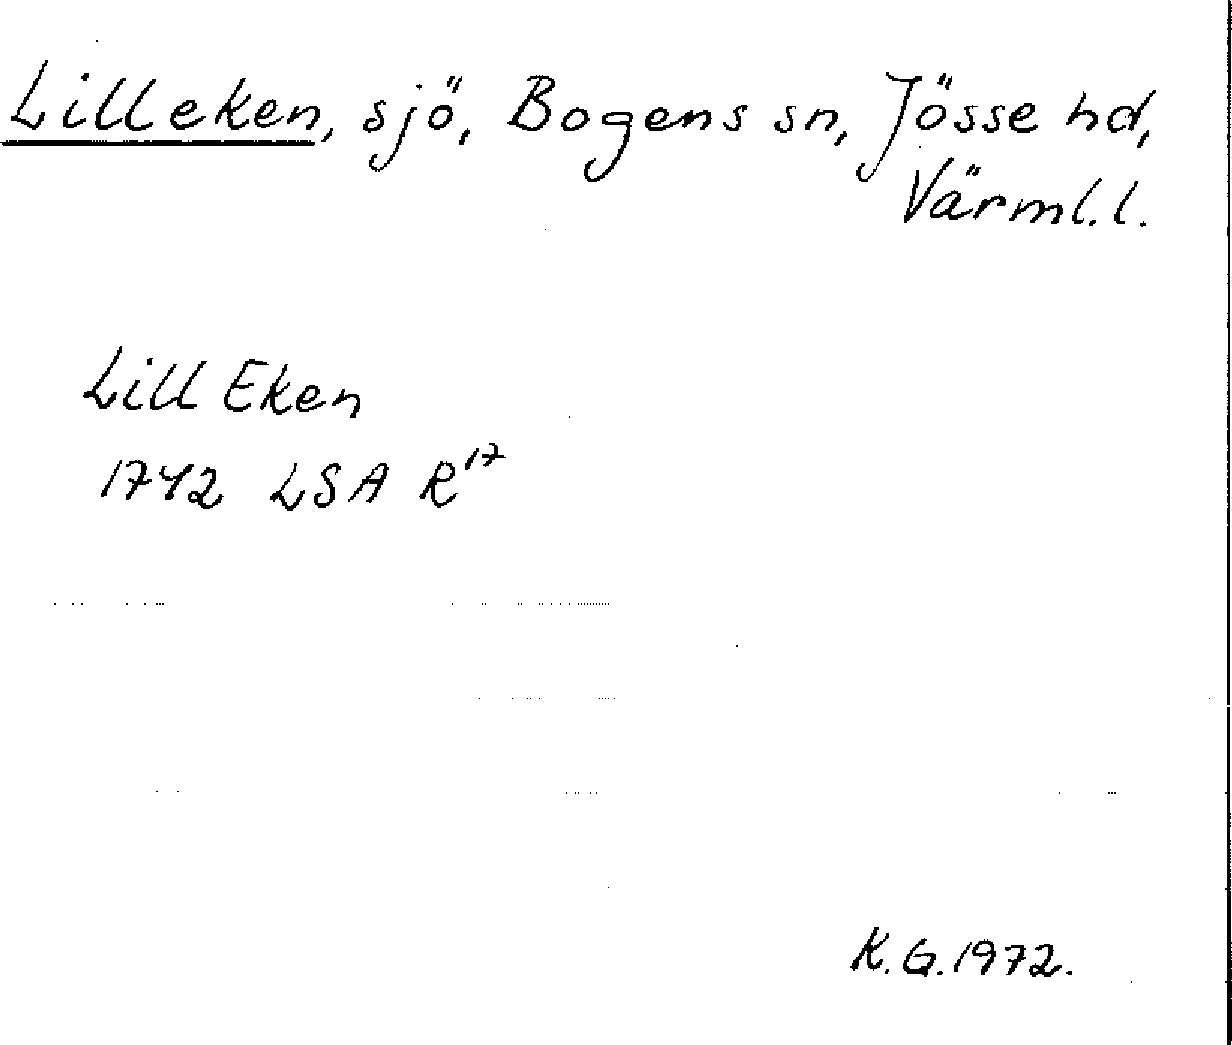 Lilleken, sjö, Bogens sn, Jösse hd,
Värml. l.
Lill Eken
1742 LSA R17
K. G. 1972.